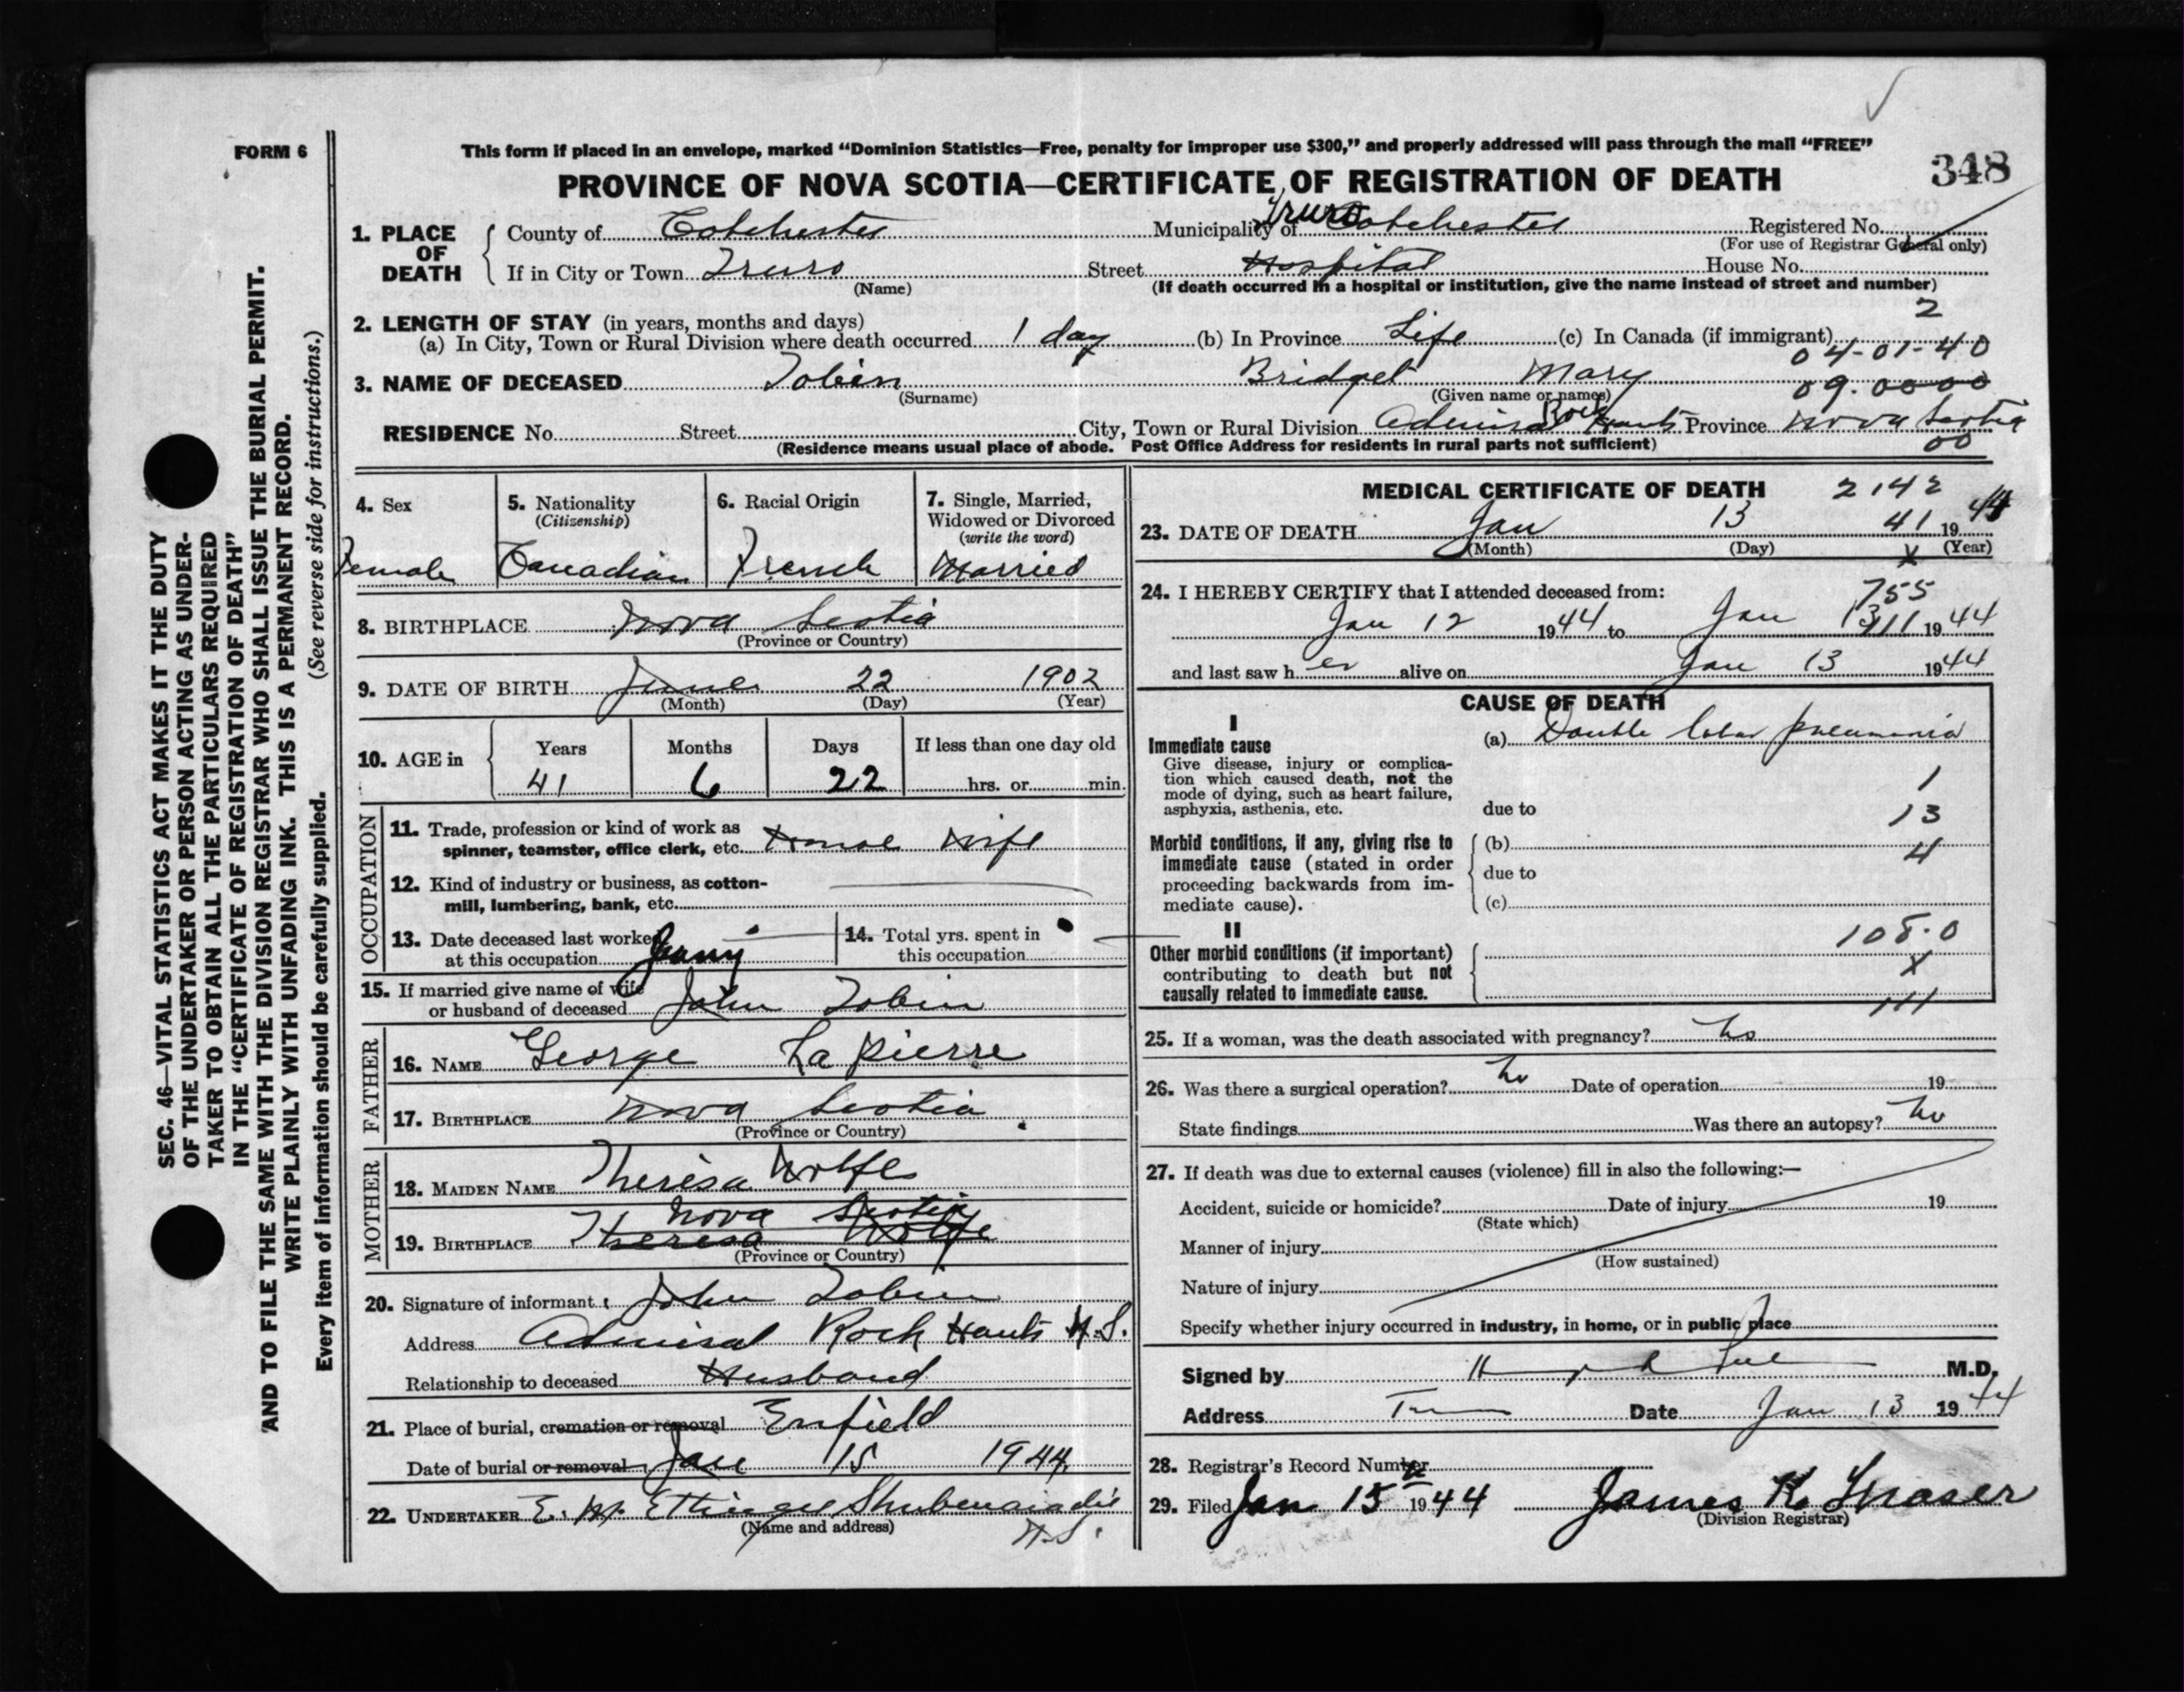 FORM 6
This form if placed in an envelope, marked “Dominion Statistics—Free, penalty for improper use $300,” and properly addressed will pass through the mail “FREE”
PROVINCE OF NOVA SCOTIA—CERTIFICATE OF REGISTRATION OF DEATH
348
SEC. 46—VITAL STATISTICS ACT MAKES IT THE DUTY
OF THE UNDERTAKER OR PERSON ACTING AS UNDER-
TAKER TO OBTAIN ALL THE PARTICULARS REQUIRED
IN THE “CERTIFICATE OF REGISTRATION OF DEATH”
AND TO FILE THE SAME WITH THE DIVISION REGISTRAR WHO SHALL ISSUE THE BURIAL PERMIT.
WRITE PLAINLY WITH UNFADING INK. THIS IS A PERMANENT RECORD.
Every item of information should be carefully supplied. (See reverse side for instructions.)
1. PLACE OF DEATH
County of Colchester Municipality of Truro Colchester Registered No.
(For use of Registrar General only)
If in City or Town Truro Street Hospital House No.
(Name) (If death occurred in a hospital or institution, give the name instead of street and number)
2
2. LENGTH OF STAY (in years, months and days)
(a) In City, Town or Rural Division where death occurred 1 day (b) In Province Life (c) In Canada (if immigrant)
04-01-40
3. NAME OF DECEASED Tobin Bridget Mary 09.0000
(Surname) (Given name or names)
RESIDENCE No. Street City, Town or Rural Division Admiral Rock Hants Province Nova Scotia
(Residence means usual place of abode. Post Office Address for residents in rural parts not sufficient) 00
4. Sex
Female
5. Nationality
(Citizenship)
Canadian
6. Racial Origin
French
7. Single, Married,
Widowed or Divorced
(write the word)
Married
8. BIRTHPLACE Nova Scotia
(Province or Country)
9. DATE OF BIRTH June 22 1902
(Month) (Day) (Year)
10. AGE in Years Months Days If less than one day old
41 6 22 hrs. or min.
OCCUPATION
11. Trade, profession or kind of work as
spinner, teamster, office clerk, etc. House Wife
12. Kind of industry or business, as cotton-
mill, lumbering, bank, etc.
13. Date deceased last worked
at this occupation
14. Total yrs. spent in
this occupation
15. If married give name of wife
or husband of deceased John Tobin
FATHER
16. NAME George La Pierre
17. BIRTHPLACE Nova Scotia
(Province or Country)
MOTHER
18. MAIDEN NAME Theresa Wolfe
Nova Scotia
19. BIRTHPLACE Theresa Wolfe
(Province or Country)
20. Signature of informant John Tobin
Address Admiral Rock Hants N.S.
Relationship to deceased Husband
21. Place of burial, cremation or removal Enfield
Date of burial or removal Jan 15 1944
22. UNDERTAKER E. W. Ettinger Shubenacadie
(Name and address) N.S.
MEDICAL CERTIFICATE OF DEATH 2142
23. DATE OF DEATH Jan 13 41 1944
(Month) (Day) x (Year)
24. I HEREBY CERTIFY that I attended deceased from: 755
Jan 12 1944 to Jan 13 111 1944
and last saw her alive on Jan 13 1944
CAUSE OF DEATH
I
Immediate cause
Give disease, injury or complica-
tion which caused death, not the
mode of dying, such as heart failure,
asphyxia, asthenia, etc.
(a) Double lobar pneumonia
1
due to
13
Morbid conditions, if any, giving rise to
immediate cause (stated in order
proceeding backwards from im-
mediate cause).
(b)
4
due to
(c)
II
Other morbid conditions (if important)
contributing to death but not
causally related to immediate cause.
108.0
X
111
25. If a woman, was the death associated with pregnancy? No
26. Was there a surgical operation? No Date of operation 19
State findings Was there an autopsy? No
27. If death was due to external causes (violence) fill in also the following:—
Accident, suicide or homicide? Date of injury 19
(State which)
Manner of injury
(How sustained)
Nature of injury
Specify whether injury occurred in industry, in home, or in public place
Signed by M.D.
Address Date Jan 13 1944
28. Registrar's Record Number
29. Filed Jan 15 1944 James K. Fraser
(Division Registrar)